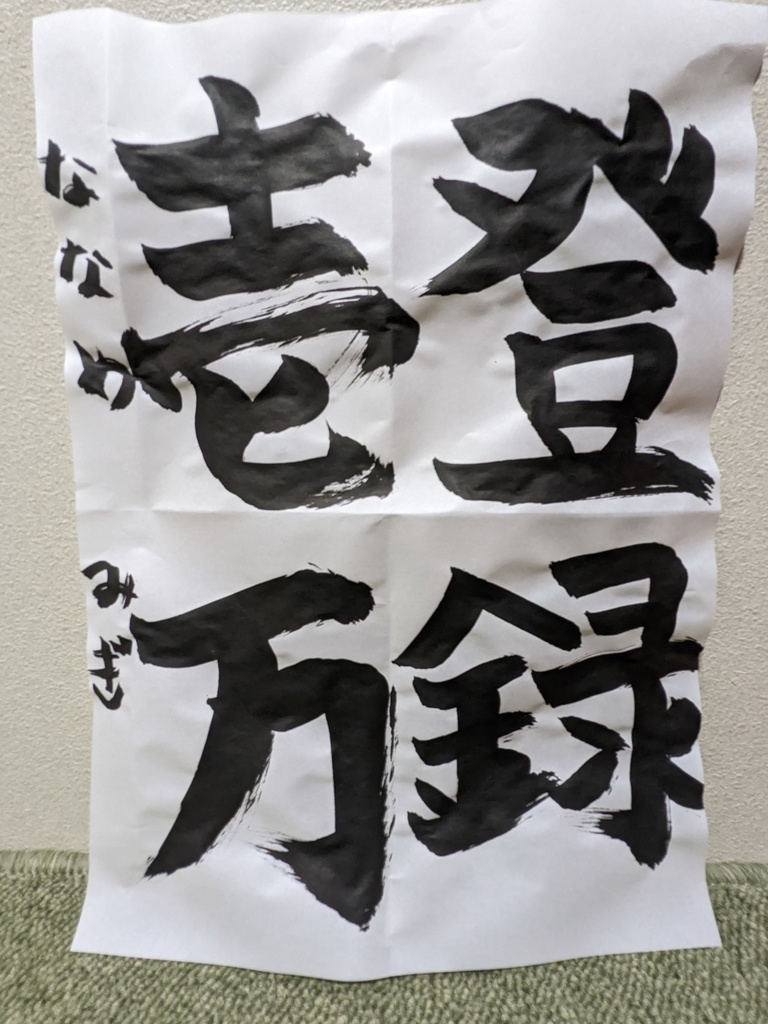 登録
壱万
ななめ みぎ